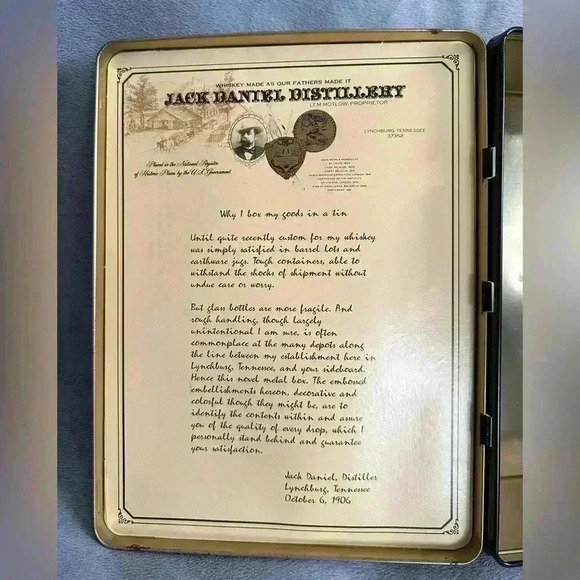 WHISKEY MADE AS OUR FATHERS MADE IT
JACK DANIEL DISTILLERY
LEM MOTLOW, PROPRIETOR
LYNCHBURG, TENNESSEE
37352
Placed in the National Register
of Historic Places by the U.S. Government.
Why I box my goods in a tin
Until quite recently custom for my whiskey
was simply satisfied in barrel lots and
earthware jugs. Tough containers, able to
withstand the shocks of shipment without
undue care or worry.
But glass bottles are more fragile. And
rough handling, though largely
unintentional I am sure, is often
commonplace at the many depots along
the line between my establishment here in
Lynchburg, Tennessee, and your sideboard.
Hence this novel metal box. The embossed
embellishments hereon, decorative and
colorful though they might be, are to
identify the contents within and assure
you of the quality of every drop, which I
personally stand behind and guarantee
your satisfaction.
Jack Daniel, Distiller
Lynchburg, Tennessee
October 6, 1906